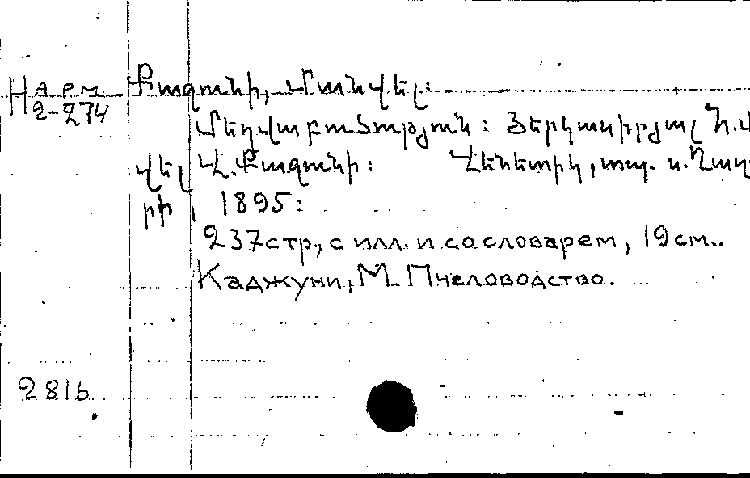 Нарм Քաջունի, Մանվել:
2-274
Մեղվաբուծություն: Յերկասիրյալ Հ.
վել Վ. Քաջունի: Վենետիկ, տպ. ս. Ղազ
րի, 1895:
237стр., с илл. и со словарем, 19см.
Каджуни, М. Пчеловодство.
281б